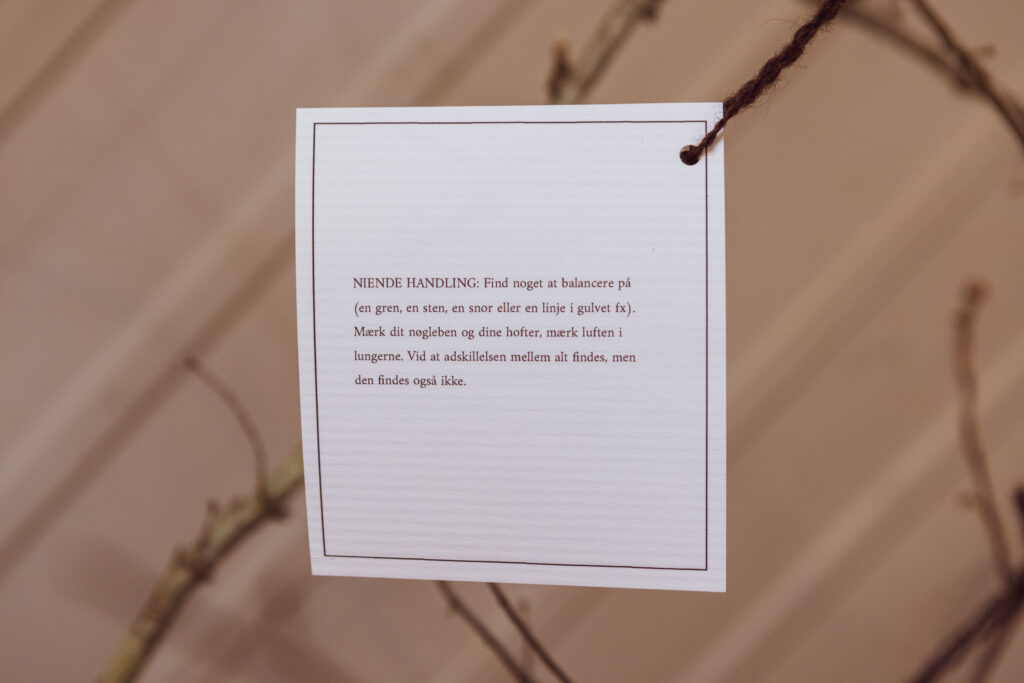 NIENDE HANDLING: Find noget at balancere på
(en gren, en sten, en snor eller en linje i gulvet fx).
Mærk dit nøgleben og dine hofter, mærk luften i
lungerne. Vid at adskillelsen mellem alt findes, men
den findes også ikke.